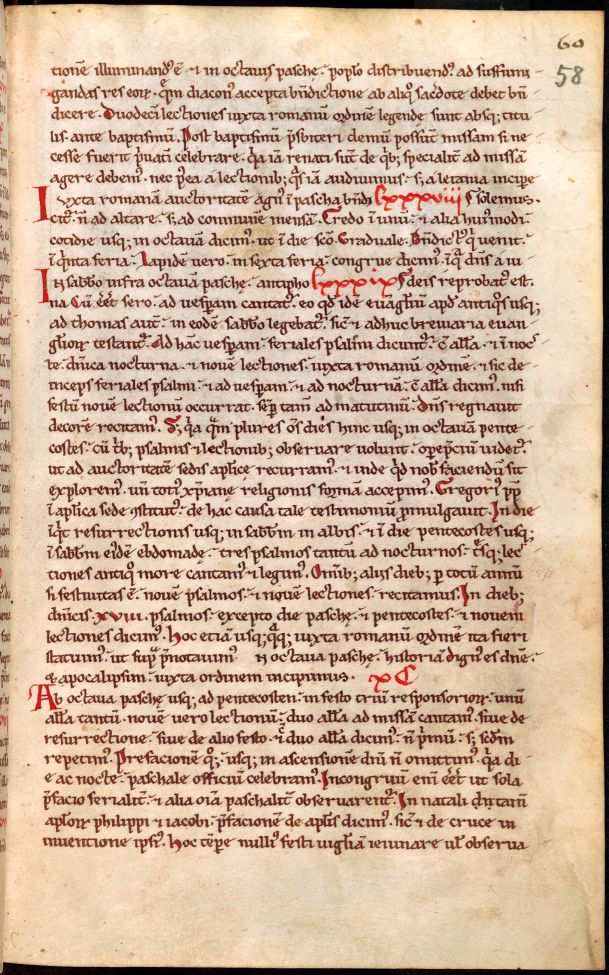 60
58
tionē illuminand᷒ ē · ⁊ in octauis pasche · pop̄lo distribuend᷒ ad suffumi-
gandas res eoꝝ · q̄m diacon᷒ accepta bn̄dictione ab aliq᷒ sac̄dote debet bn̄-
dicere · Duodecī lectiones iuxta romanū ordinē legende sunt absq; titu-
lis · ante baptismū · Post baptismū p̄sbiteri demū possūt missam si ne-
cesse fuerit p̄uatī celebrare · q̄a iā renati sūt de q̄b; specialit̄ ad missā
agere debem᷒ · nec p̄ea a lectionib; q̄s iā audiuimus · s; a letania incipe
Iuxta romanā auctoritatē agn᷒ ī pascha bn̄d̄ lxxxviii solemus ·
cit᷒ · n̄ ad altare · s; ad commune mensā · Credo ī unū · ⁊ alia hui᷒modi ·
cotidie usq; in octauā dicim᷒ · ut ī die sc̄o · Graduale · Bn̄dict᷒ q̄ uenit ·
ī q̄nta feria · Lapidē uero · in sexta feria · congrue dicim᷒ · īq̄ dn̄s a iu-
In sabb̄o infra octauā pasche · antipho lxxxix deis reprobat᷒ est ·
na Cū eēt sero · ad uesp̄am cantat᷒ · eo qd̄ idē euaḡliū ap̄d antiq᷒s usq;
ad thomas aut̄ · in eodē sabb̄o legebat᷒ · sic̄ ⁊ adhuc breuiaria euan-
glioꝝ testant᷒ · Ad hāc uesp̄am · feriales psalmi dicunt᷒ · c̄ all̄a · ⁊ ī noc-
te · dn̄ica nocturna · ⁊ nouē lectiones · iuxta romanū ordinē · ⁊ sic de-
inceps feriales psalmi · ⁊ ad uesp̄am · ⁊ ad nocturnā · c̄ all̄a dicim᷒ · nisi
festū nouē lectionū occurrat · sēp̄ tam̄ ad matutinū · Dn̄s regnauit
decorē recitam᷒ · S; q̄a q̄m plures om̄s dies hinc usq; in octauā pente-
costes · cū t̄b; psalmis ⁊ lectionib; obseruare uolunt · op̄ep̄ciū uidet᷒ ·
ut ad auctoritatē sedis ap̄lice recurram᷒ · ⁊ inde qd̄ nob̄ faciendū sit
explorem᷒ · un̄ toti᷒ xp̄iane religionis formā accepim᷒ · Gregori᷒ pp̄
ī ap̄lica sede ꝯstitut᷒ · de hac causa tale testimoniū p̄mulgauit · In die
īq̄t resurrectionis usq; in sabb̄m in albis · ⁊ ī die pentecostes usq;
ī sabb̄m ei᷒dē ebdomade · tres psalmos tantū ad nocturnos · t̄sq; lec-
tiones antiq᷒ more cantam᷒ ⁊ legim᷒ · Om̄ib; alijs dieb; p totū annū
si festiuitas ē · nouē psalmos · ⁊ nouē lectiones recitamus · In dieb;
dn̄icis · xviii · psalmos · excepto die pasche · ⁊ pentecostes · ⁊ nouem
lectiones dicim᷒ · Hoc etiā usq;q̄q; iuxta romanū ordinē ita fieri
statuim᷒ · ut sup̄ p̄notauim᷒ n octaua pasche · historiā dign᷒ es dn̄e ·
& apocalipsim · iuxta ordinem incipimus · xC
Ab octaua pasche usq; ad pentecosten · in festo triū responsorioꝝ · unū
all̄a tantū · nouē uero lectionū · duo all̄a ad missā cantam᷒ · siue de
resurrectione · siue de alio festo · ⁊ ī duo all̄a dicim᷒ · n̄ p̄mū · s; scd̄m
repetim᷒ · Prefacionē q᷒; usq; in ascensionē dn̄i n̄ omittim᷒ · q̄a di-
e ac nocte · paschale officiū celebram᷒ · Incongruū enī eēt ut sola
p̄facio serialit̄ · ⁊ alia om̄a paschalit̄ obseruarent᷒ · In natali tam̄
ap̄loꝝ philippi ⁊ iacobi · p̄facionē de ap̄lis dicim᷒ · sic̄ ⁊ de cruce in
inuentione ipsi᷒ · Hoc tēp̄e nulli᷒ festi uigliā ieiunare uł obserua